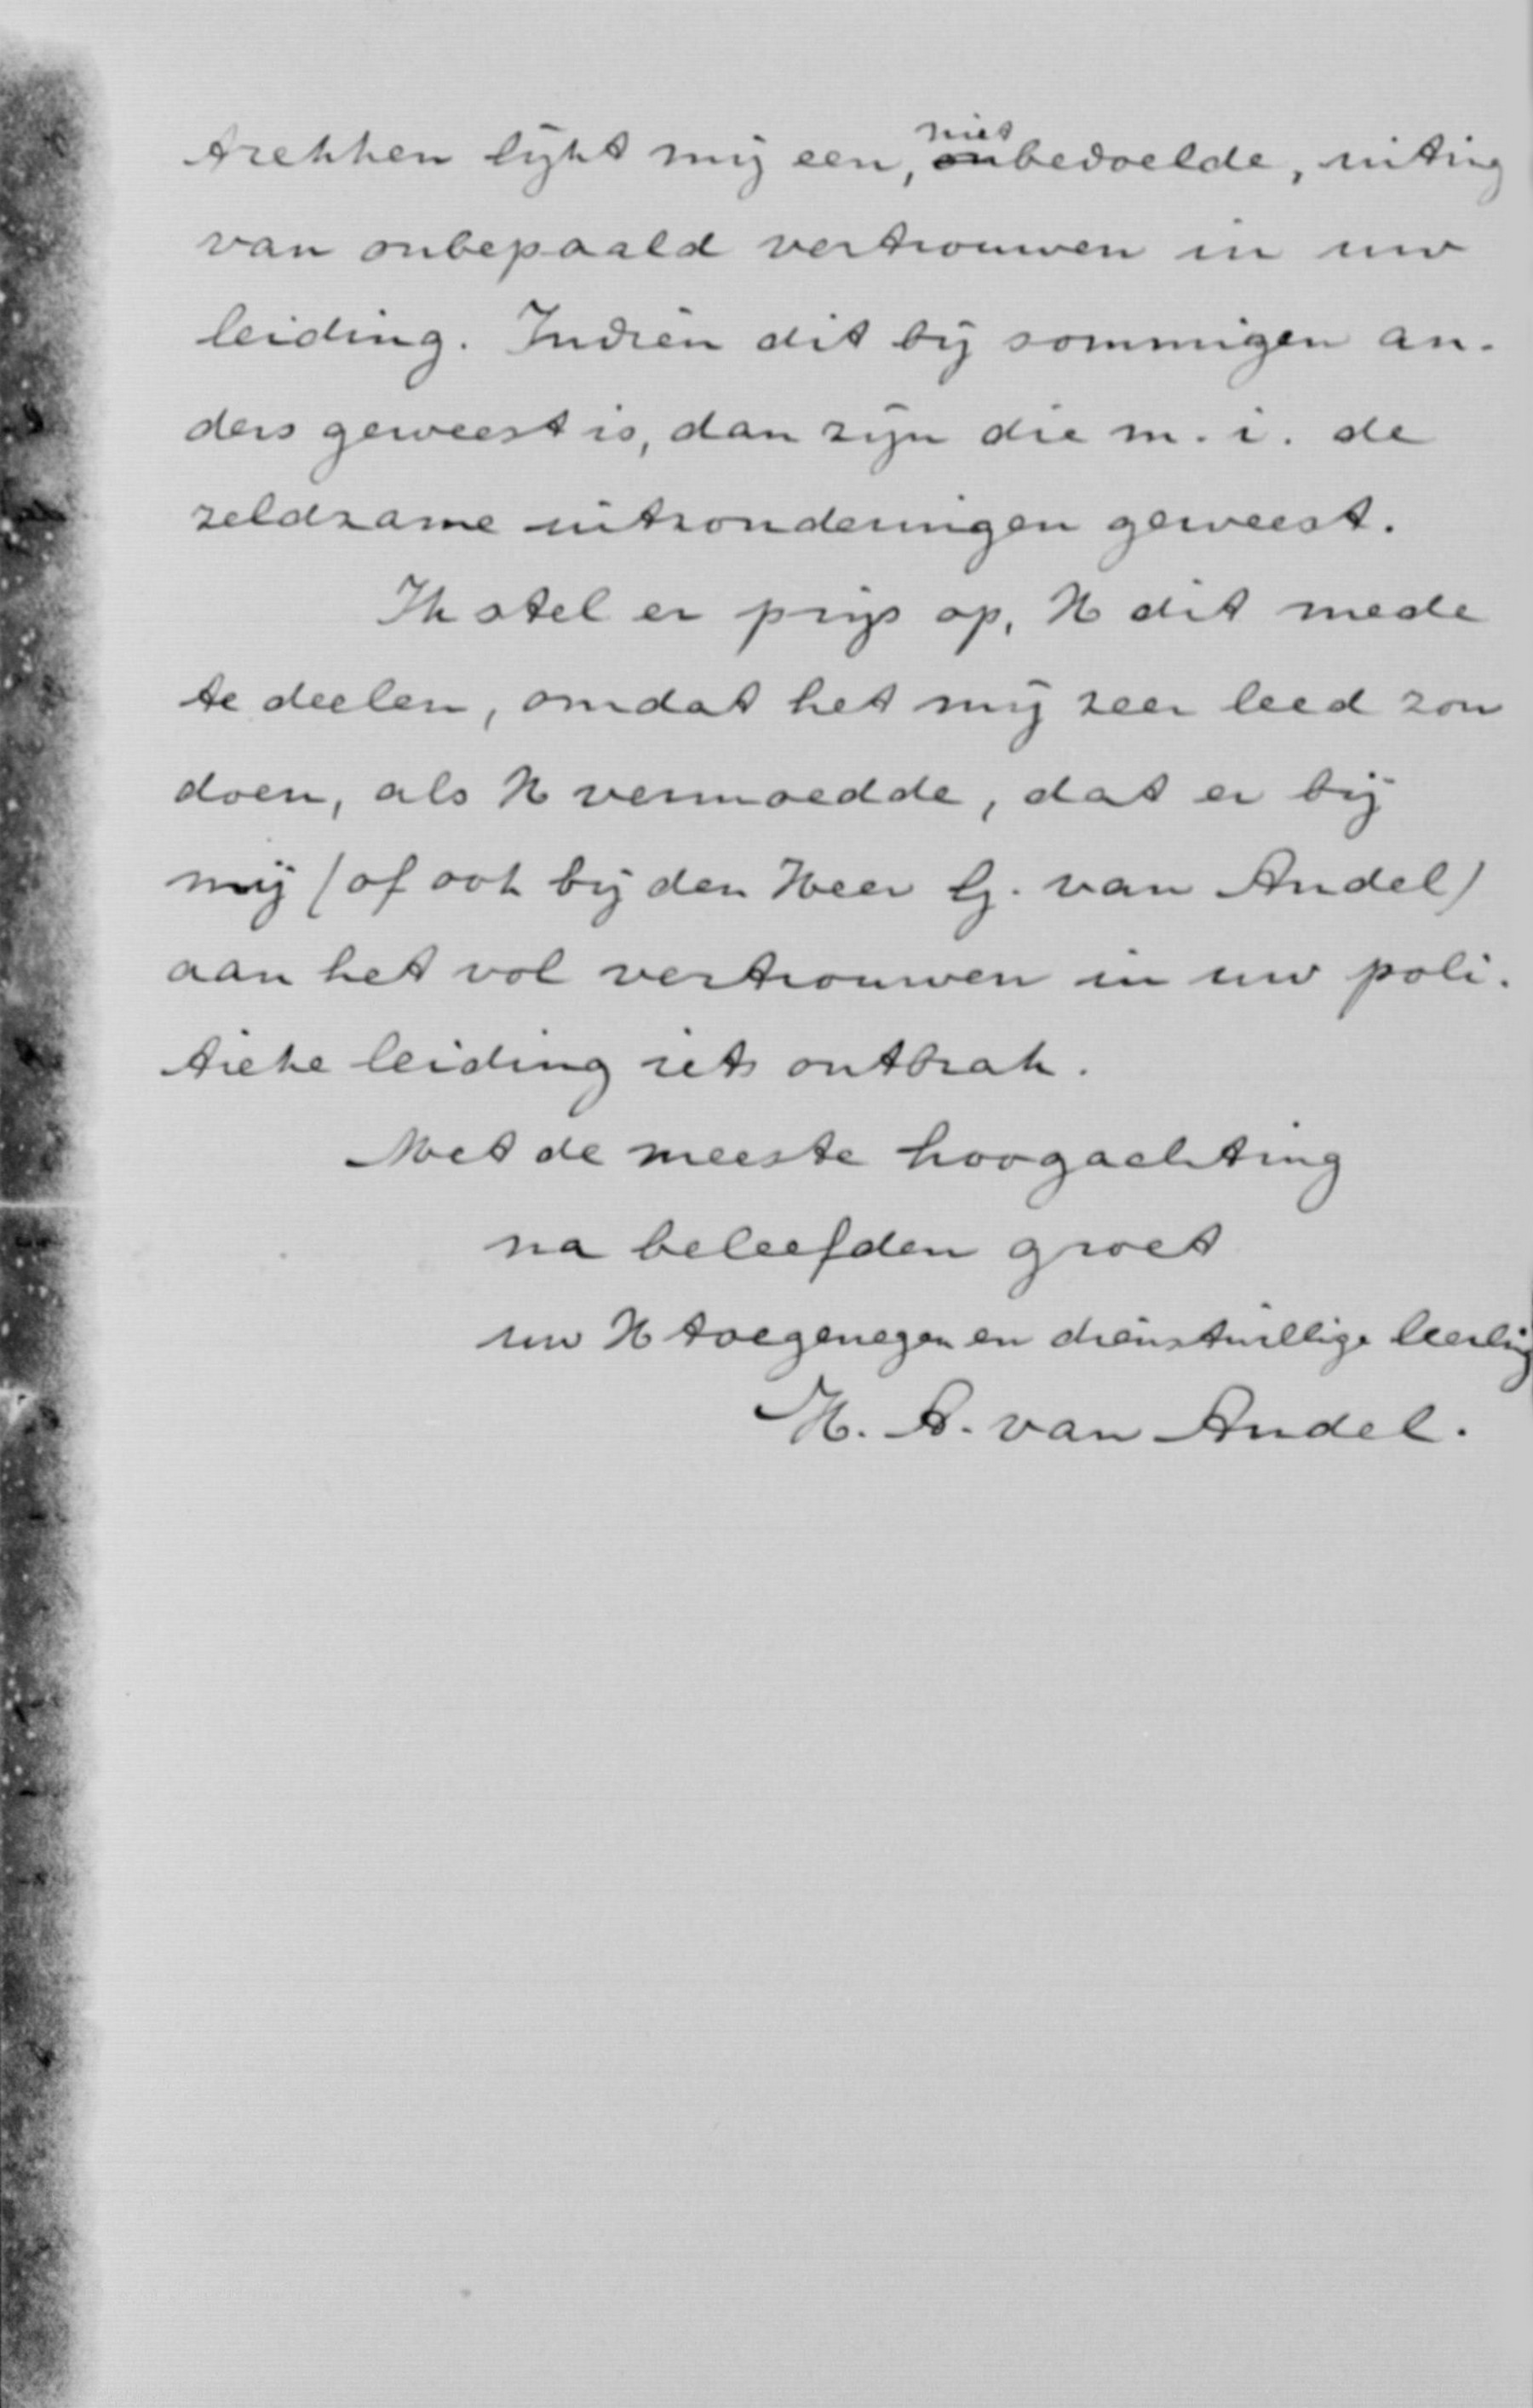 trekken lijkt mij een, niet bedoelde, uiting
van onbepaald vertrouwen in uw
leiding. Indien dit bij sommigen an-
ders geweest is, dan zijn die m. i. de
zeldzame uitzonderingen geweest.
Ik stel er prijs op, U dit mede
te deelen, omdat het mij zeer leed zou
doen, als U vermoedde, dat er bij
mij (of ook bij den Heer G. van Andel)
aan het vol vertrouwen in uw poli-
tieke leiding iets ontbrak.
Met de meeste hoogachting
na beleefden groet
uw U toegenegen en dienstwillige leerling
H. A. van Andel.